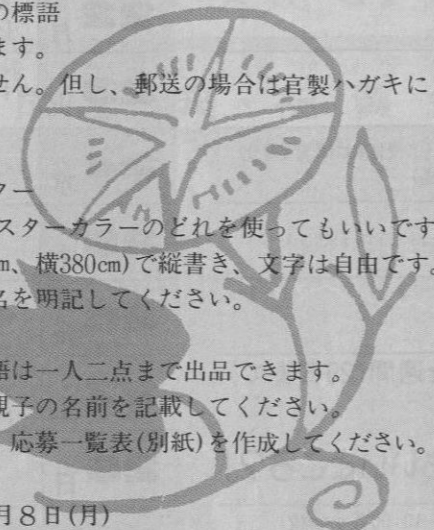 の標語
ます。
せん。但し、郵送の場合は官製ハガキに
ター
スターカラーのどれを使ってもいいです
m、横380cm)で縦書き、文字は自由です。
名を明記してください。
語は一人二点まで出品できます。
親子の名前を記載してください。
応募一覧表(別紙)を作成してください。
月8日(月)